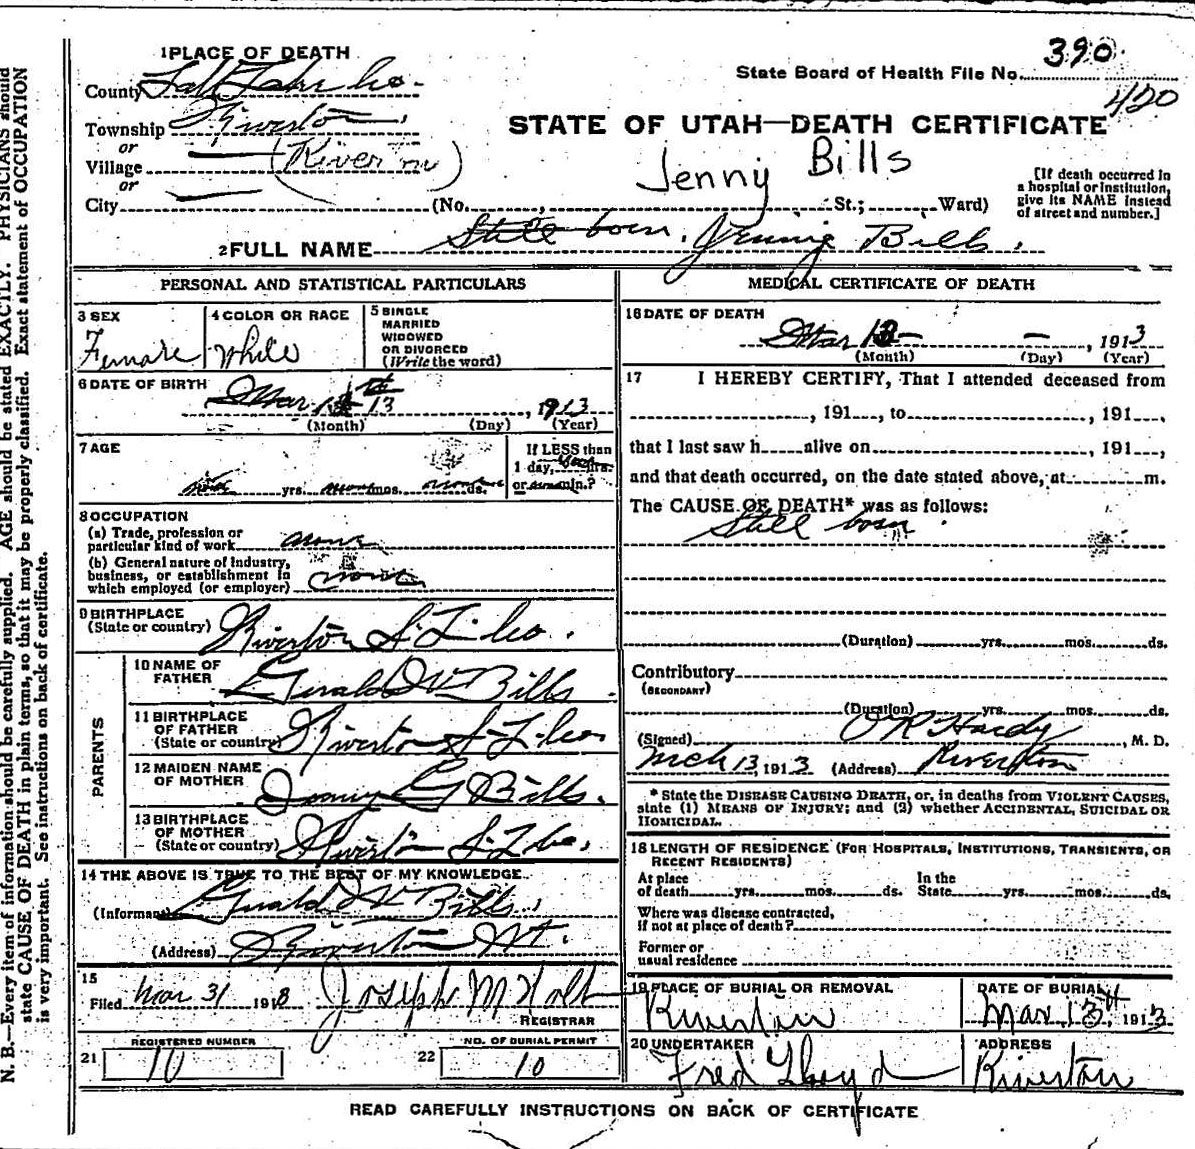 N. B.—Every item of information should be carefully supplied. AGE should be stated EXACTLY. PHYSICIANS should
state CAUSE OF DEATH in plain terms, so that it may be properly classified. Exact statement of OCCUPATION
is very important. See instructions on back of certificate.
1 PLACE OF DEATH
County Salt Lake Co.
Township Riverton
or
Village (Riverton)
or
City
State Board of Health File No. 390
420
STATE OF UTAH—DEATH CERTIFICATE
Jenny Bills
(No. , St.; Ward)
[If death occurred in
a hospital or institution,
give its NAME instead
of street and number.]
2 FULL NAME Still born. Jennie Bills.
PERSONAL AND STATISTICAL PARTICULARS
3 SEX
Female
4 COLOR OR RACE
White
5 SINGLE
MARRIED
WIDOWED
OR DIVORCED
(Write the word)
6 DATE OF BIRTH
Mar. 13, 1913
(Month) (Day) (Year)
7 AGE
yrs. mos. ds.
If LESS than
1 day, hrs.
or min.?
8 OCCUPATION
(a) Trade, profession or
particular kind of work
(b) General nature of Industry,
business, or establishment in
which employed (or employer)
9 BIRTHPLACE
(State or country) Riverton S. L. Co.
PARENTS
10 NAME OF
FATHER Gerald W Bills
11 BIRTHPLACE
OF FATHER
(State or country) Riverton S L Co
12 MAIDEN NAME
OF MOTHER G Bills.
13 BIRTHPLACE
OF MOTHER
(State or country) Riverton S. L. Co.
14 THE ABOVE IS TRUE TO THE BEST OF MY KNOWLEDGE.
(Informant) Gerald W Bills.
(Address) Riverton Ut.
15
Filed Mar 31 1918 Joseph M Holt
REGISTRAR
REGISTERED NUMBER
21 10
NO. OF BURIAL PERMIT
22 10
MEDICAL CERTIFICATE OF DEATH
16 DATE OF DEATH
Mar — , 1913
(Month) (Day) (Year)
17 I HEREBY CERTIFY, That I attended deceased from
, 191 , to , 191 ,
that I last saw h alive on , 191 ,
and that death occurred, on the date stated above, at m.
The CAUSE OF DEATH* was as follows:
Still born
(Duration) yrs. mos. ds.
Contributory
(SECONDARY)
(Duration) yrs. mos. ds.
(Signed) O R Hardy, M. D.
Mch 13, 1913 (Address) Riverton
* State the DISEASE CAUSING DEATH, or, in deaths from VIOLENT CAUSES,
state (1) MEANS OF INJURY; and (2) whether ACCIDENTAL, SUICIDAL OR
HOMICIDAL.
18 LENGTH OF RESIDENCE (FOR HOSPITALS, INSTITUTIONS, TRANSIENTS, OR
RECENT RESIDENTS)
At place
of death yrs. mos. ds.
In the
State yrs. mos. ds.
Where was disease contracted,
if not at place of death?
Former or
usual residence
19 PLACE OF BURIAL OR REMOVAL
Riverton
DATE OF BURIAL
Mar 13, 1913
20 UNDERTAKER
Fred Lloyd
ADDRESS
Riverton
READ CAREFULLY INSTRUCTIONS ON BACK OF CERTIFICATE